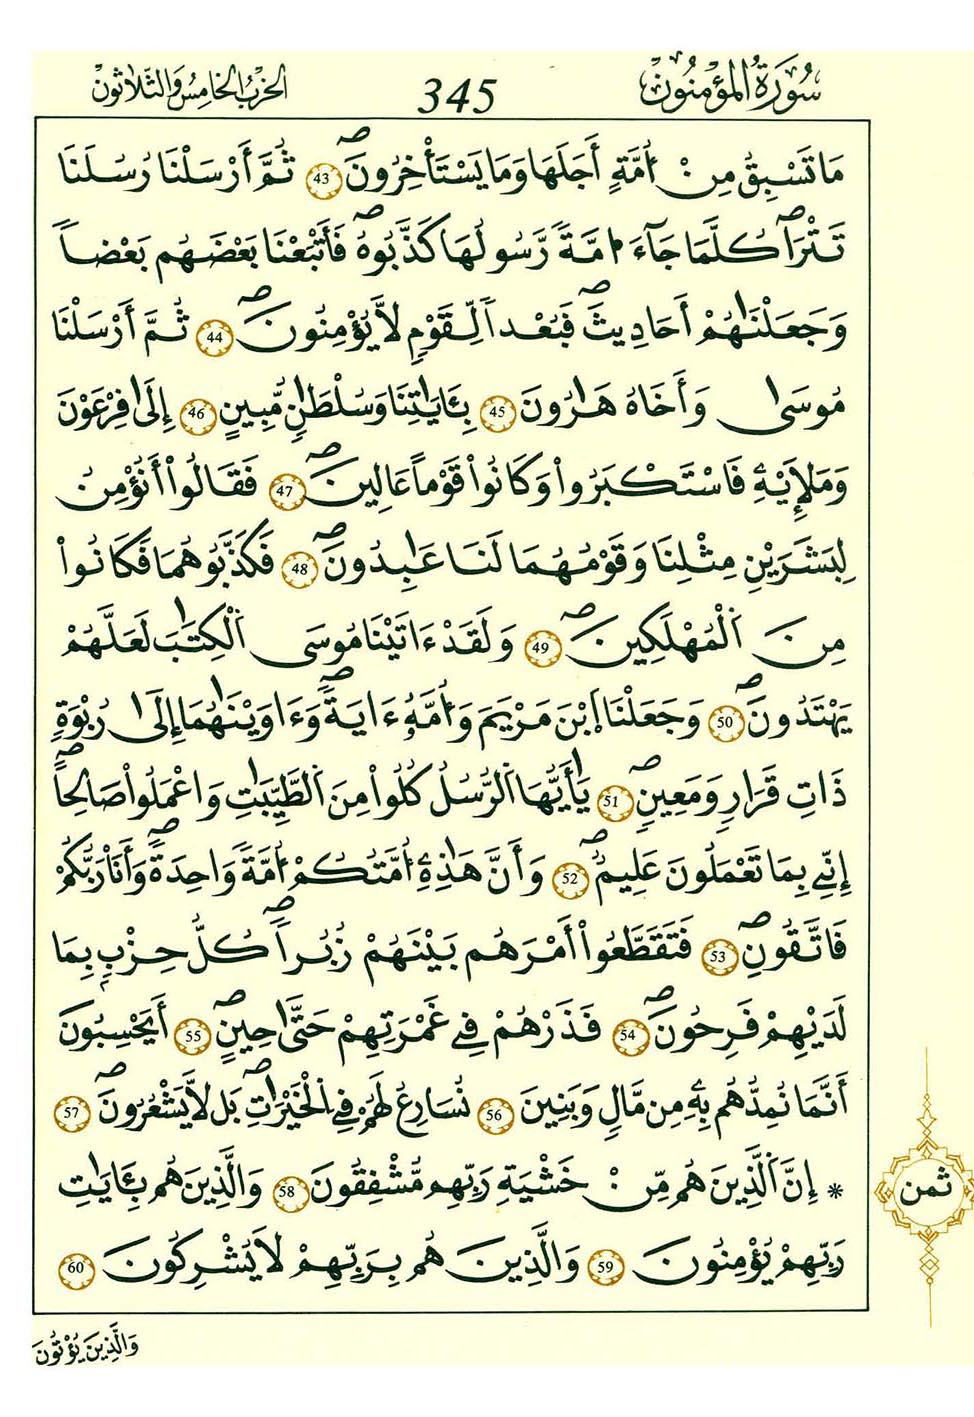 سُورَةُ الْمُؤْمِنُونَ 345 الْحِزْبُ الْخَامِسُ وَالثَّلَاثُونَ
مَا تَسْبِقُ مِنُ امَّةٍ أَجَلَهَا وَمَا يَسْتَأْخِرُونَۖ 43 ثُمَّ أَرْسَلْنَا رُسُلَنَا
تَتْرَاۖ كُلَّمَا جَآءَ امَّةٗ رَّسُولُهَا كَذَّبُوهُۖ فَأَتْبَعْنَا بَعْضَهُم بَعْضاٗ
وَجَعَلْنَٰهُمُۥٓ أَحَادِيثَۖ فَبُعْداٗ لِّقَوْمٖ لَّا يُؤْمِنُونَۖ 44 ثُمَّ أَرْسَلْنَا
مُوسَىٰ وَأَخَاهُ هَٰرُونَ 45 بِـَٔايَٰتِنَا وَسُلْطَٰنٖ مُّبِينٍ 46 إِلَىٰ فِرْعَوْنَ
وَمَلَإِيْهِۦ فَاسْتَكْبَرُواْ وَكَانُواْ قَوْماً عَالِينَۖ 47 فَقَالُواْ أَنُؤْمِنُ
لِبَشَرَيْنِ مِثْلِنَا وَقَوْمُهُمَا لَنَا عَٰبِدُونَۖ 48 فَكَذَّبُوهُمَا فَكَانُواْ
مِنَ اَلْمُهْلَكِينَۖ 49 وَلَقَدْ ءَاتَيْنَا مُوسَى اَلْكِتَٰبَ لَعَلَّهُمْ
يَهْتَدُونَۖ 50 وَجَعَلْنَا اَبْنَ مَرْيَمَ وَأُمَّهُۥٓ ءَايَةٗۖ وَءَاوَيْنَٰهُمَا إِلَىٰ رُبْوَةٖ
ذَاتِ قَرَارٖ وَمَعِينٖۖ 51 يَٰأَيُّهَا اَلرُّسُلُ كُلُواْ مِنَ اَلطَّيِّبَٰتِ وَاعْمَلُواْ صَالِحاًۖ
إِنِّے بِمَا تَعْمَلُونَ عَلِيمٞۖ 52 وَأَنَّ هَٰذِهِۦٓ أُمَّتُكُمُۥٓ أُمَّةٗ وَاحِدَةٗۖ وَأَنَا رَبُّكُمْ
فَاتَّقُونِۖ 53 فَتَقَطَّعُواْ أَمْرَهُم بَيْنَهُمْ زُبُراٗۖ كُلُّ حِزْبِۢ بِمَا
لَدَيْهِمْ فَرِحُونَۖ 54 فَذَرْهُمْ فِے غَمْرَتِهِمْ حَتَّىٰ حِينٍۖ 55 أَيَحْسِبُونَ
أَنَّمَا نُمِدُّهُم بِهِۦ مِن مَّالٖ وَبَنِينَ 56 نُسَارِعُ لَهُمْ فِے اِلْخَيْرَٰتِۖ بَل لَّا يَشْعُرُونَۖ 57
* إِنَّ اَلَّذِينَ هُم مِّنْ خَشْيَةِ رَبِّهِم مُّشْفِقُونَ 58 وَالَّذِينَ هُم بِـَٔايَٰتِ
رَبِّهِمْ يُؤْمِنُونَ 59 وَالَّذِينَ هُم بِرَبِّهِمْ لَا يُشْرِكُونَ 60
ثمن
وَالَّذِينَ يُؤْتُونَ